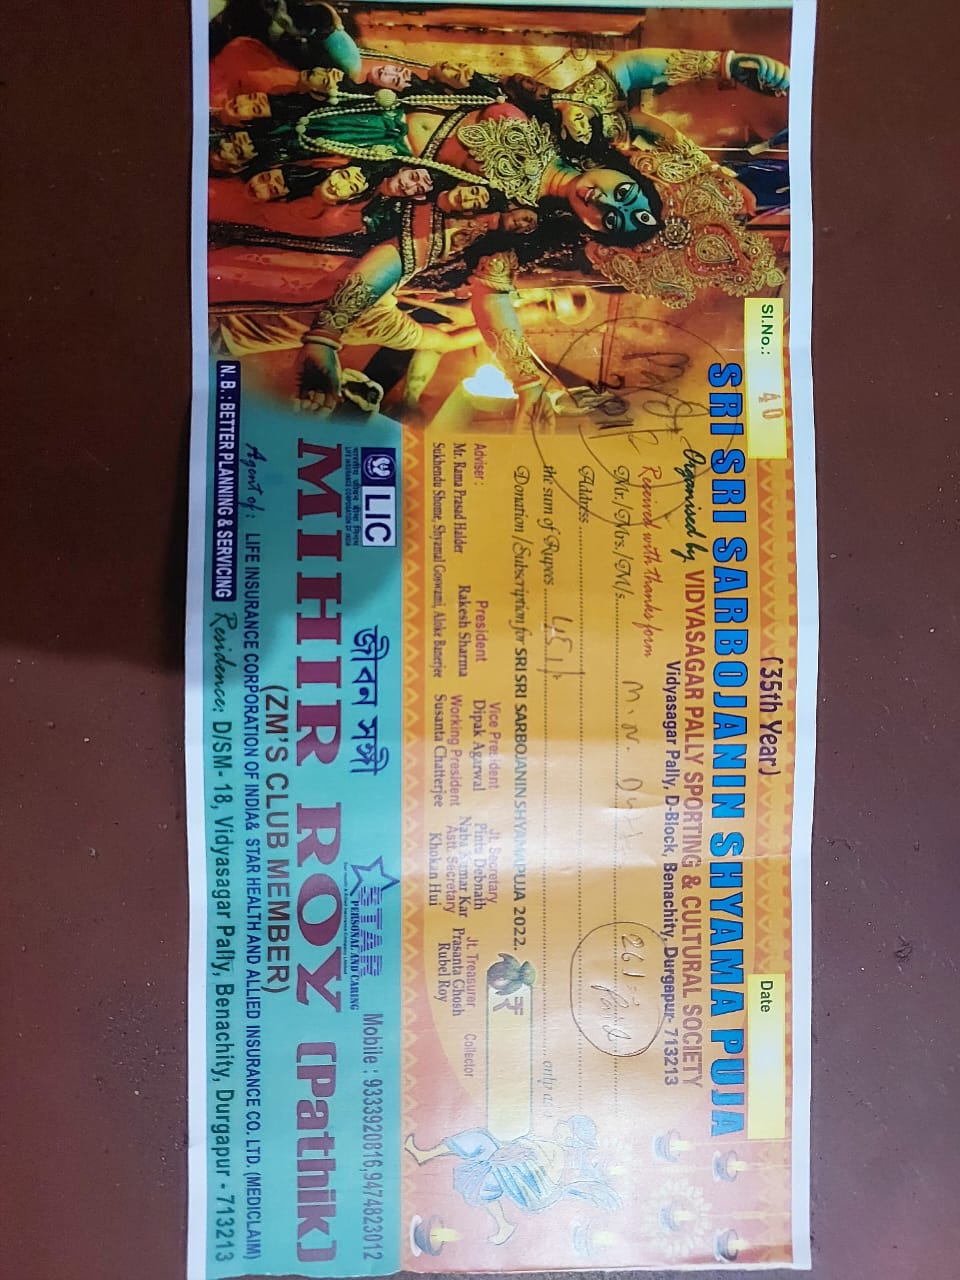 Sl.No.: 40
(35th Year)
Date
SRI SRI SARBOJANIN SHYAMA PUJA
Organised by VIDYASAGAR PALLY SPORTING & CULTURAL SOCIETY
Vidyasagar Pally, D-Block, Benachity, Durgapur- 713213
Received with thanks form
Mr./Mrs./M/s. M. N. Dutta
261/= Paid
Paid 2011
Address
the sum of Rupees 451/- only as a
Donation/Subscription for SRI SRI SARBOJANIN SHYAMAPUJA 2022.
₹
Adviser :
Mr. Rama Prasad Halder
Sukhendu Shome, Shyamal Goswami, Aloke Banerjee
President
Rakesh Sharma
Vice President
Dipak Agarwal
Working President
Susanta Chatterjee
Jt. Secretary
Pintu Debnath
Naba Kumar Kar
Astt. Secretary
Khokan Hui
Jt. Treasurer
Prasanta Ghosh
Rubel Roy
Collector
LIC
भारतीय जीवन बीमा निगम
LIFE INSURANCE CORPORATION OF INDIA
জীবন সঙ্গী
STAR
PERSONAL AND CARING
Star Health & Allied Insurance Company Limited
Mobile : 9333920816,9474823012
MIHIR ROY (Pathik)
(ZM'S CLUB MEMBER)
Agent of : LIFE INSURANCE CORPORATION OF INDIA& STAR HEALTH AND ALLIED INSURANCE CO. LTD. (MEDICLAIM)
N. B. : BETTER PLANNING & SERVICING
Residence: D/SM- 18, Vidyasagar Pally, Benachity, Durgapur - 713213